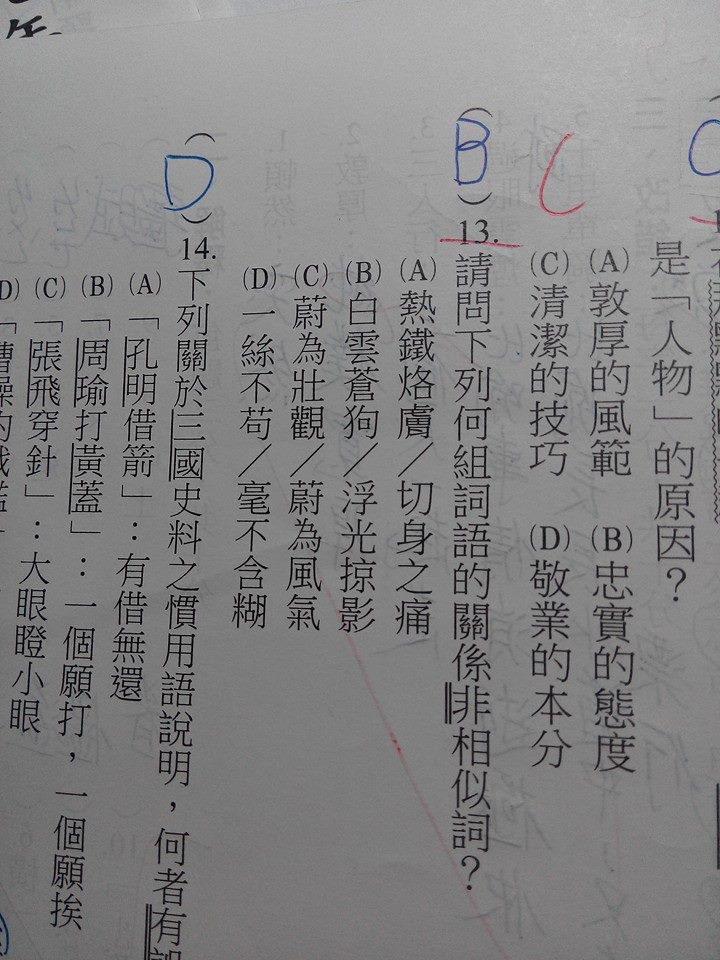 是「人物」的原因?
(A)敦厚的風範 (B)忠實的態度
(C)清潔的技巧 (D)敬業的本分
C
(B)13.請問下列何組詞語的關係非相似詞?
(A)熱鐵烙膚/切身之痛
(B)白雲蒼狗/浮光掠影
(C)蔚為壯觀/蔚為風氣
(D)一絲不苟/毫不含糊
(D)14.下列關於三國史料之慣用語說明,何者有
(A)「孔明借箭」:有借無還
(B)「周瑜打黃蓋」:一個願打,一個願挨
(C)「張飛穿針」:大眼瞪小眼
(D)「曹操的